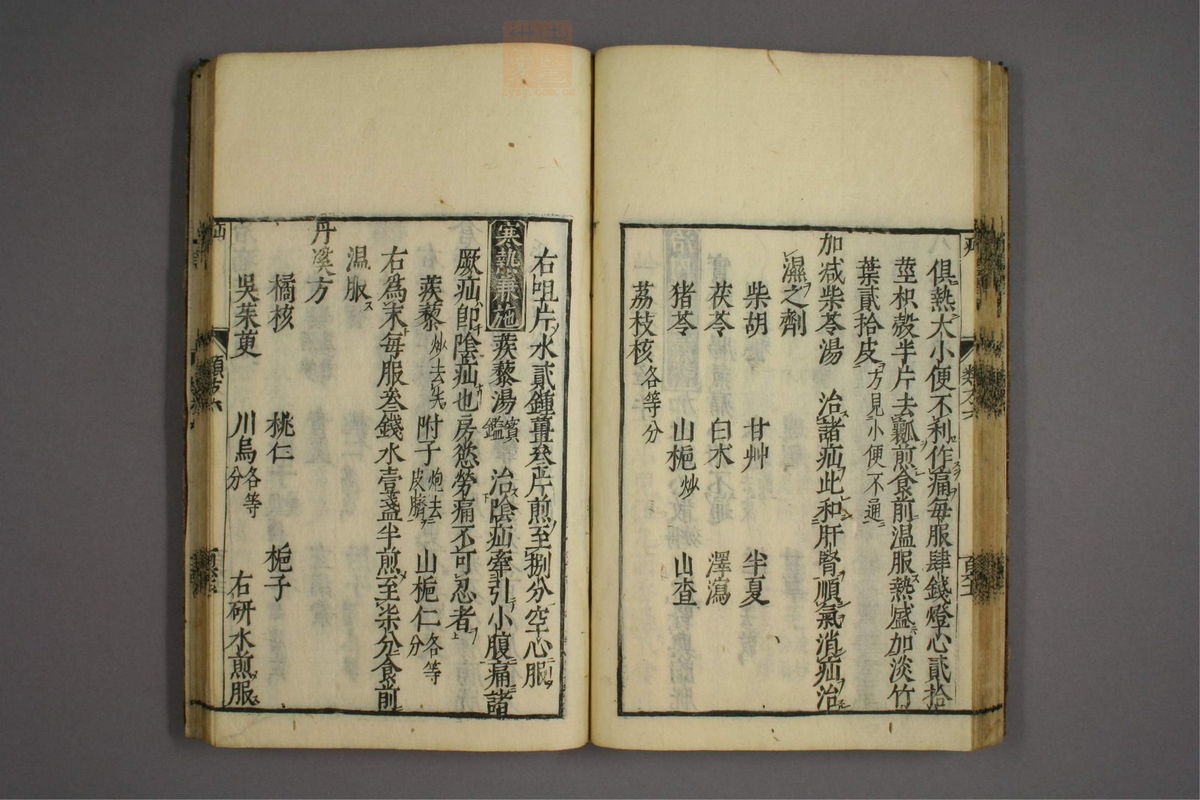 俱熱大小便不利作痛每服肆錢燈心貳拾
莖枳殼半片去瓤煎食前温服熱盛加淡竹
葉貳拾皮方見小便不通
加减柴苓湯 治諸疝此和肝腎順氣消疝治
濕之劑
柴胡 甘艸 半夏
茯苓 白朮 澤瀉
猪苓 山梔炒 山查
荔枝核各等分
右咀片水貳鍾薑叁片煎至捌分空心服
寒熱兼施 蒺藜湯寳鑑 治陰疝牽引小腹痛諸
厥疝卽陰疝也房慾勞痛不可忍者
蒺藜炒去尖 附子炮去皮臍 山梔仁各等分
右為末每服叁錢水壹盞半煎至柒分食前
温服
丹溪方
橘核 桃仁 梔子
吳茱萸 川烏各等分 右研水煎服